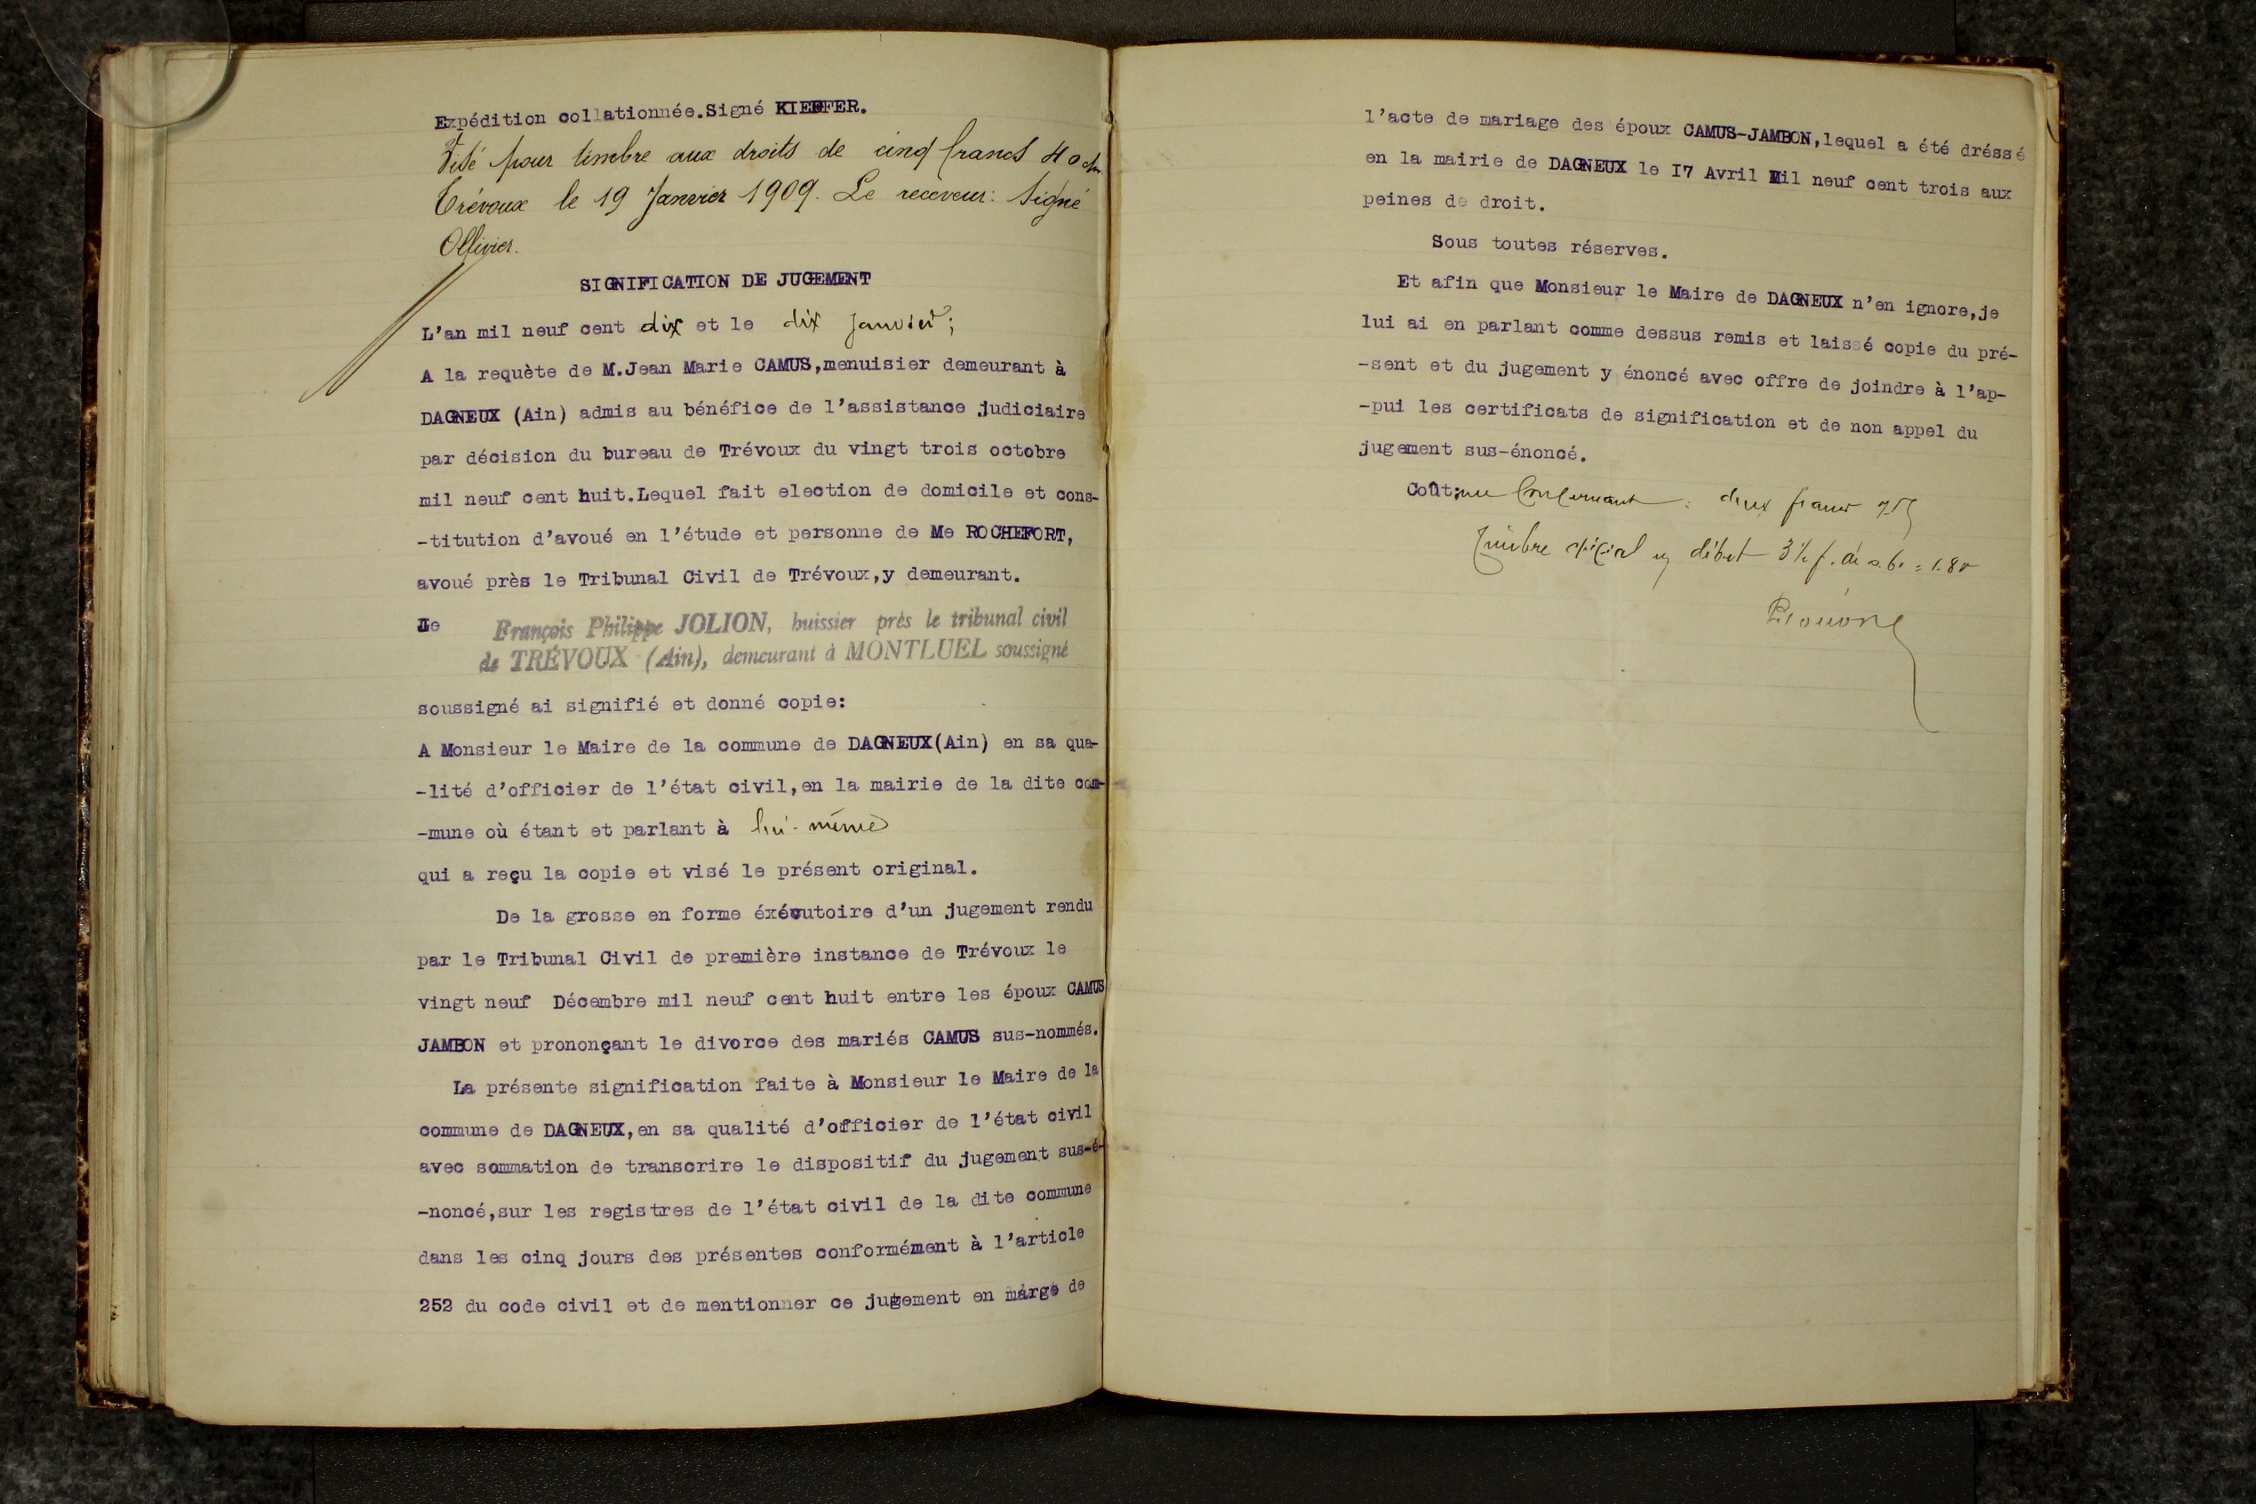 Expédition collationnée.Signé KIEFFER.
Visé pour timbre aux droits de cinq francs 40 c.
Trévoux le 19 Janvier 1909. Le receveur: Signé
Ollivier.
SIGNIFICATION DE JUGEMENT
L'an mil neuf cent dix et le dix Janvier;
A la requète de M.Jean Marie CAMUS,menuisier demeurant à
DAGNEUX (Ain) admis au bénéfice de l'assistance judiciaire
par décision du bureau de Trévoux du vingt trois octobre
mil neuf cent huit.Lequel fait election de domicile et cons-
-titution d'avoué en l'étude et personne de Me ROCHEFORT,
avoué près le Tribunal Civil de Trévoux,y demeurant.
Je François Philippe JOLION, huissier près le tribunal civil
de TRÉVOUX (Ain), demeurant à MONTLUEL soussigné
soussigné ai signifié et donné copie:
A Monsieur le Maire de la commune de DAGNEUX(Ain) en sa qua-
-lité d'officier de l'état civil,en la mairie de la dite com-
-mune où étant et parlant à lui-même
qui a reçu la copie et visé le présent original.
De la grosse en forme éxécutoire d'un jugement rendu
par le Tribunal Civil de première instance de Trévoux le
vingt neuf Décembre mil neuf cent huit entre les époux CAMUS
JAMBON et prononçant le divorce des mariés CAMUS sus-nommés.
La présente signification faite à Monsieur le Maire de la
commune de DAGNEUX,en sa qualité d'officier de l'état civil
avec sommation de transcrire le dispositif du jugement sus-é-
-noncé,sur les registres de l'état civil de la dite commune
dans les cinq jours des présentes conformément à l'article
252 du code civil et de mentionner ce jugement en marge de
l'acte de mariage des époux CAMUS-JAMBON,lequel a été dréssé
en la mairie de DAGNEUX le I7 Avril Mil neuf cent trois aux
peines de droit.
Sous toutes réserves.
Et afin que Monsieur le Maire de DAGNEUX n'en ignore,je
lui ai en parlant comme dessus remis et laissé copie du pré-
-sent et du jugement y énoncé avec offre de joindre à l'ap-
-pui les certificats de signification et de non appel du
jugement sus-énoncé.
Coût: deux francs
Timbre spécial débet 3 1/2 f. = 1.80